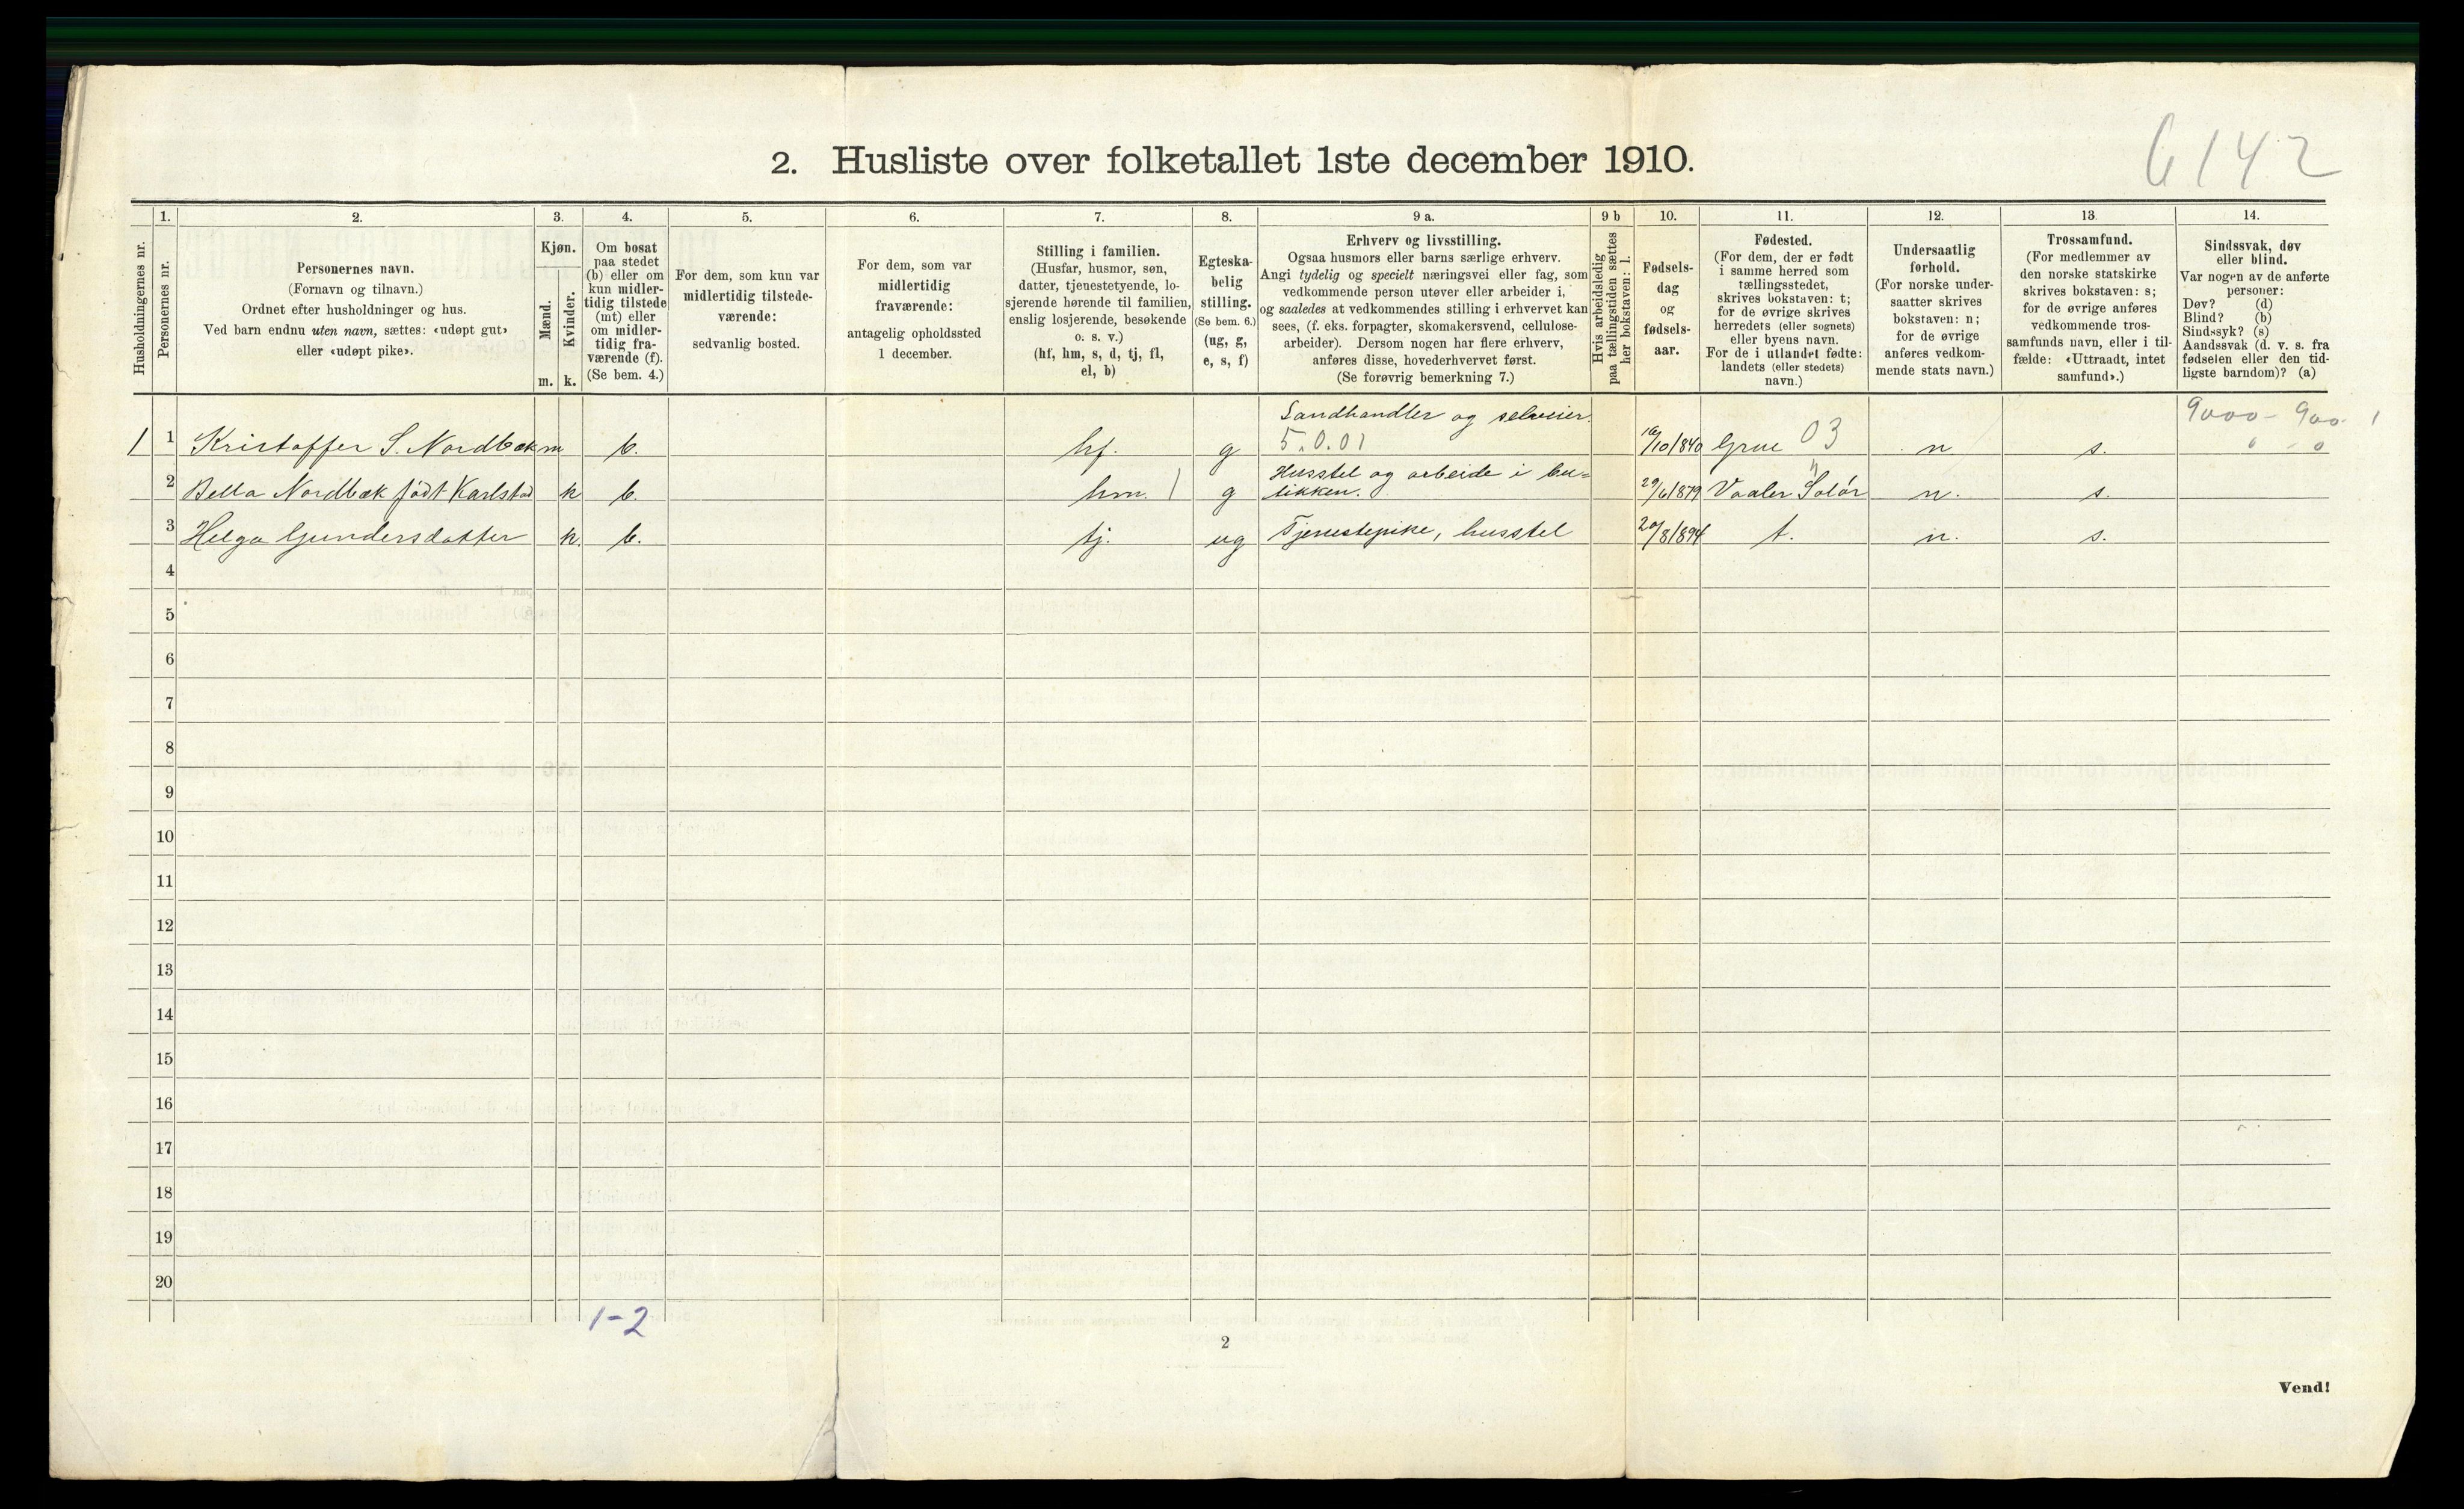 6142
2. Husliste over folketallet 1ste december 1910.
1.
2.
3.
4.
5.
6.
7.
8.
9 a.
9 b
10.
11.
12.
13.
14.
Husholdningernes nr.
Personernes nr.
Personernes navn.
(Fornavn og tilnavn.)
Ordnet efter husholdninger og hus.
Ved barn endnu uten navn, sættes: «udøpt gut»
eller «udøpt pike».
Kjøn.
Mænd.
Kvinder.
m. k.
Om bosat
paa stedet
(b) eller om
kun midler-
tidig tilstede
(mt) eller
om midler-
tidig fra-
værende (f).
(Se bem. 4.)
For dem, som kun var
midlertidig tilstede-
værende:
sedvanlig bosted.
For dem, som var
midlertidig
fraværende:
antagelig opholdssted
1 december.
Stilling i familien.
(Husfar, husmor, søn,
datter, tjenestetyende, lo-
sjerende hørende til familien,
enslig losjerende, besøkende
o. s. v.)
(hf, hm, s, d, tj, fl,
el, b)
Egteska-
belig
stilling.
(Se bem. 6.)
(ug, g,
e, s, f)
Erhverv og livsstilling.
Ogsaa husmors eller barns særlige erhverv.
Angi tydelig og specielt næringsvei eller fag, som
vedkommende person utøver eller arbeider i,
og saaledes at vedkommendes stilling i erhvervet kan
sees, (f. eks. forpagter, skomakersvend, cellulose-
arbeider). Dersom nogen har flere erhverv,
anføres disse, hovederhvervet først.
(Se forøvrig bemerkning 7.)
Hvis arbeidsledig
paa tællingstiden sættes
her bokstaven: l.
Fødsels-
dag
og
fødsels-
aar.
Fødested.
(For dem, der er født
i samme herred som
tællingsstedet,
skrives bokstaven: t;
for de øvrige skrives
herredets (eller sognets)
eller byens navn.
For de i utlandet fødte:
landets (eller stedets)
navn.)
Undersaatlig
forhold.
(For norske under-
saatter skrives
bokstaven: n;
for de øvrige
anføres vedkom-
mende stats navn.)
Trossamfund.
(For medlemmer av
den norske statskirke
skrives bokstaven: s;
for de øvrige anføres
vedkommende tros-
samfunds navn, eller i til-
fælde: «Uttraadt, intet
samfund».)
Sindssvak, døv
eller blind.
Var nogen av de anførte
personer:
Døv? (d)
Blind? (b)
Sindssyk? (s)
Aandssvak (d. v. s. fra
fødselen eller den tid-
ligste barndom)? (a)
Landhandler og selveier. 9000 - 900 1
1 1 Kristoffer S. Nordbæk m b. hf. g 5.0.01 16/10/840 Grue 03 n s. 0 - 0
Husstel og arbeide i bu=
2 Bella Nordbæk født Karlstad k b. hm. 1 g tikken. 29/6/879 Vaaler Solør n. s.
3 Helga Gundersdatter k. b. tj. ug Tjenestepike, husstel 20/8/894 t. n. s.
4
5
6
7
8
9
10
11
12
13
14
15
16
17
18
19
20
1-2
2
Vend!